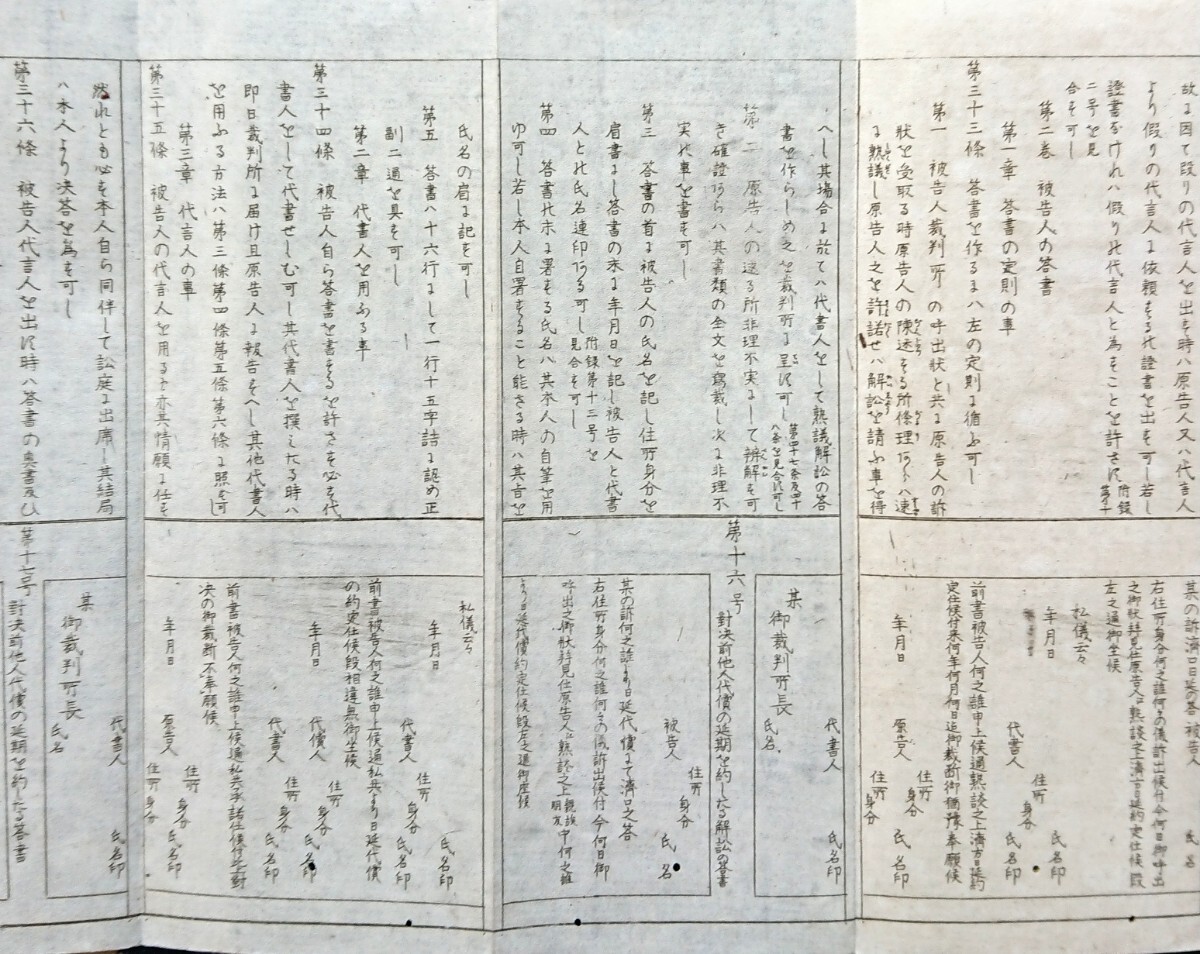 故よ因て叚りの代言人を出を時ハ原告人又ハ代言人
より假りの代人よ依頼をる比證書を出を可し若し
證書なけれハ假り比代言人と為をことを許さ須附録第十
二号を見
合を可し
第二巻 被告人の答書
第一章 答書の定則の事
第三十三條 答書を作るよハ左の定則よ循ふ可し
第一 被告人裁判所の呼出状と共よ原告人の訴
状を受取る時原告人の陳述をる所條理アらハ速
よ熟議し原告人之を許諾せハ解訟を請ふ事を得
へし其場合よ於てハ代書人をして熟議解訟の答
書を作らしめ之を裁判所よ呈須可し第四十七条及四十
八条を見合須可し
第二 原告人の述る所非理不実よして辨解を可
き確證アらハ其書類の全文を寫載し次よ非理不
実比事を書を可し
第三 答書の首よ被告人の氏名を記し住所身分を
肩書よし答書の末よ年月日を記し被告人と代書
人と比氏名連印アる可し附録第十三号を
見合を可し
第四 答書比末よ署をる氏名ハ其本人の自筆を用
ゆ可し若し本人自署をること能さる時ハ其㫖を
氏名の肩よ記を可し
第五 答書ハ十六行よして一行十五字詰よ認め正
副二通を具を可し
第二章 代書人を用ふる事
第三十四條 被告人自ら答書を書をるを許さを必を代
書人をして代書せしむ可し其代書人を撰えたる時ハ
即日裁判所よ届け且原告人よ報告をへし其他代書人
を用ふる方法ハ第三條第四條第五條第六條よ照を可
第三章 代言人の事
第三十五條 被告人の代言人を用るも亦其情願よ任を
然れとも必を本人自ら同伴して訟庭よ出席し其結局
ハ本人より決答を為を可し
第三十六條 被告人代言人を出須時ハ答書の奥書及ひ
某の訴済口日延の答 被告人 氏名
右住所身分何之誰何々の儀訴出候付今何日御呼出
之御状拝見仕原告人江熟談之上済方日延約定仕候段
左之通御坐候
私儀云々
年月日
住所
身分
代書人 氏名印
氏名印
前書被告人何之誰申上候通熟談之上済方日延約
定仕候付来何年何月何日迄御裁断御猶豫奉願候
年月日
住所
身分
原告人 氏名印
住所
身分
代書人 氏名印
某
御裁判所長
氏名
第十六号
對決前他人代償の延期を約したる解訟の答書
被告人
住所
身分
氏名
某の訴何之誰より日延代償よて済口之答
右住所身分何之誰何々の儀訴出候付今何日御
呼出之御状拝見仕原告人江熟談之上親族
朋友中何之誰
より日延代償約定仕候段左之通御座候
私儀云々
年月日
住所
身分
氏名印
代書人
氏名印
前書被告人何之誰申上候通私共より日延代償
の約定仕候段相違無御坐候
年月日
住所
身分
代償人 氏名印
住所
身分
代書人 氏名印
前書被告人何之誰申上候通私共承諾仕候付之上對
決の御裁断不奉願候
年月日
住所
身分
原告人 氏名印
住所
身分
代書人 氏名印
某
御裁判所長
氏名
第十七号
對決前他人代償の延期を約したる答書